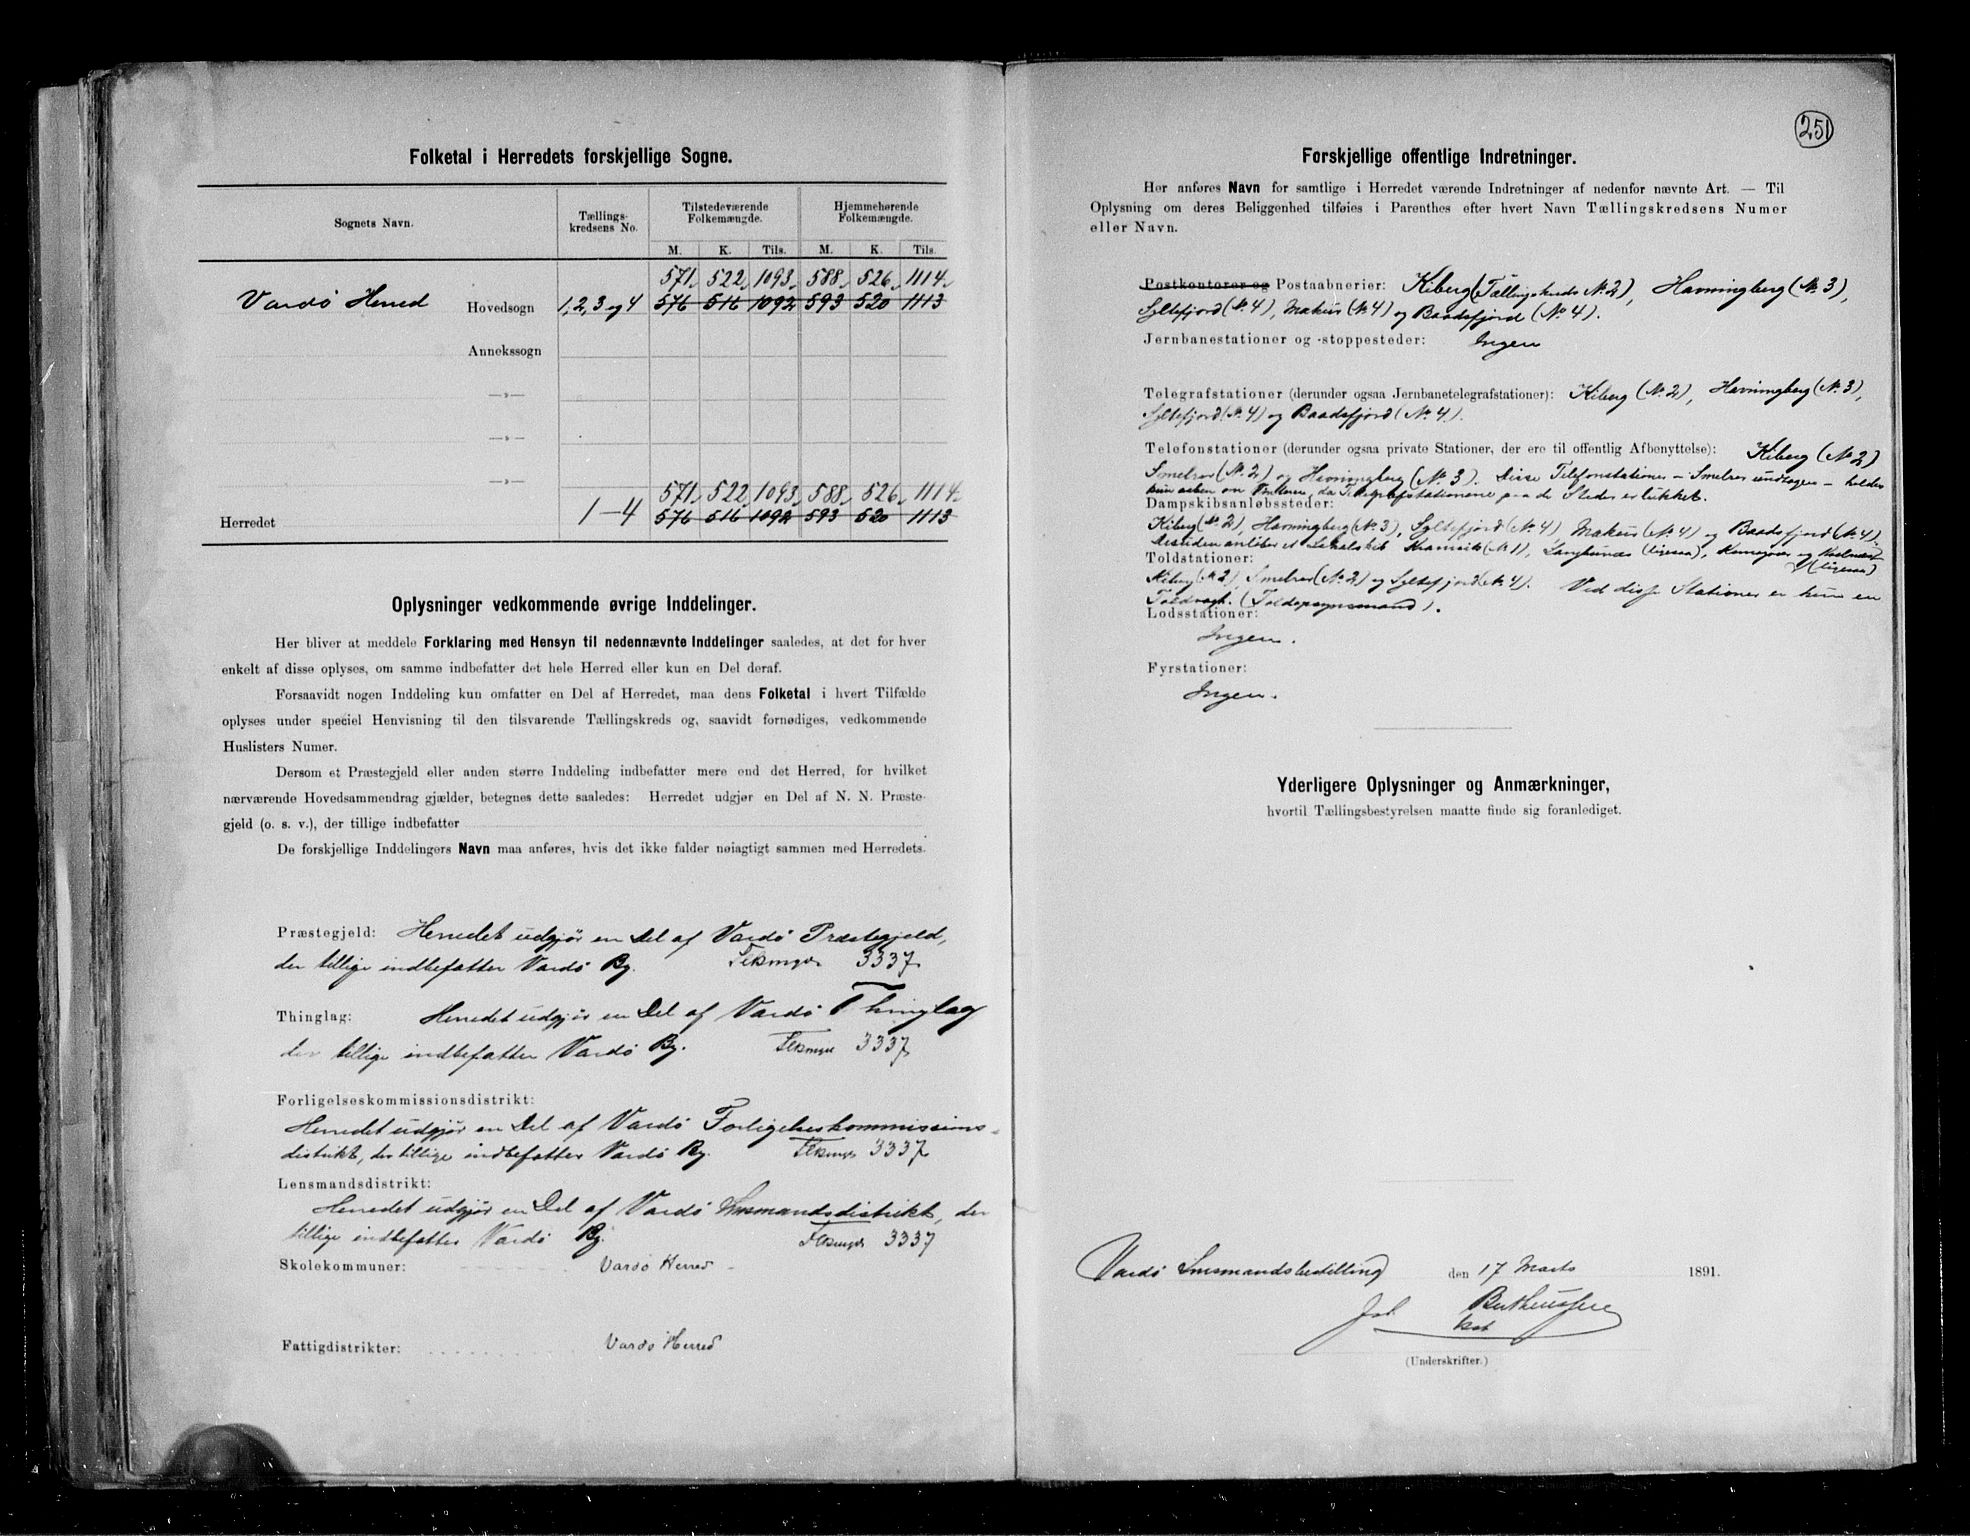 Folketal i Herredets forskjellige Sogne.
Sognets Navn.
Tællings-
kredsens No.
Tilstedeværende
Folkemængde.
Hjemmehørende
Folkemængde.
M. K. Tils. M. K. Tils.
571 522 1093 588 526 1114
Vardø Herred Hovedsogn 1, 2, 3 og 4 576 516 1092 593 520 1113
Annekssogn
—»—
—»—
—»—
571 522 1093 588 526 1114
Herredet 1-4 576 516 1092 593 520 1113
Oplysninger vedkommende øvrige Inddelinger.
Her bliver at meddele Forklaring med Hensyn til nedennævnte Inddelinger saaledes, at det for hver
enkelt af disse oplyses, om samme indbefatter det hele Herred eller kun en Del deraf.
Forsaavidt nogen Inddeling kun omfatter en Del af Herredet, maa dens Folketal i hvert Tilfælde
oplyses under speciel Henvisning til den tilsvarende Tællingskreds og, saavidt fornødiges, vedkommende
Huslisters Numer.
Dersom et Præstegjeld eller anden større Inddeling indbefatter mere end det Herred, for hvilket
nærværende Hovedsammendrag gjælder, betegnes dette saaledes: Herredet udgjør en Del af N. N. Præste-
gjeld (o. s. v.), der tillige indbefatter
De forskjellige Inddelingers Navn maa anføres, hvis det ikke falder nøiagtigt sammen med Herredets.
Præstegjeld: Herredet udgjør en Del af Vardø Præstegjeld,
der tillige indbefatter Vardø By. 3337
Thinglag: Herredet udgjør en Del af Vardø Thinglag
der tillige indbefatter Vardø By. 3337
Forligelseskommissionsdistrikt:
Herredet udgjør en Del af Vardø Forligelseskommissions-
distrikt, der tillige indbefatter Vardø By. 3337
Lensmandsdistrikt:
Herredet udgjør en Del af Vardø Lensmandsdistrikt, der
tillige indbefatter Vardø By. 3337
Skolekommuner: Vardø Herred
Fattigdistrikter: Vardø Herred
251
Forskjellige offentlige Indretninger.
Her anføres Navn for samtlige i Herredet værende Indretninger af nedenfor nævnte Art. — Til
Oplysning om deres Beliggenhed tilføies i Parenthes efter hvert Navn Tællingskredsens Numer
eller Navn.
Postkontorer og Postaabnerier: Kiberg (Tællingskreds No 2), Havningberg (No 3),
Syltefjord (No 4), Makur (No 4) og Baadsfjord (No 4).
Jernbanestationer og -stoppesteder: Ingen
Telegrafstationer (derunder ogsaa Jernbanetelegrafstationer): Kiberg (No 2), Havningberg (No 3),
Syltefjord (No 4) og Baadsfjord (No 4).
Telefonstationer (derunder ogsaa private Stationer, der ere til offentlig Afbenyttelse): Kiberg (No 2)
Smelror (No 2) og Havningberg (No 3). Disse Telefonstationer – Smelror undtagen – holdes
kun aaben om Vinteren, da Telegrafstationerne paa de Steder er lukket.
Dampskibsanløbssteder:
Kiberg (No 2), Havningberg (No 3), Syltefjord (No 4), Makur (No 4) og Baadsfjord (No 4).
Desuden anløber et Lokalskib Kramvik (No 1), Langbunæs (ligesaa), og
(ligesaa)
Toldstationer:
Kiberg (No 2), Smelror (No 2) og Syltefjord (No 4). Ved disse Stationer er kun en
Toldvagt. (Toldopsynsmand).
Lodsstationer:
Ingen.
Fyrstationer:
Ingen.
Yderligere Oplysninger og Anmærkninger,
hvortil Tællingsbestyrelsen maatte finde sig foranlediget.
Vardø Lensmandsbestilling den 17 Marts 1891.
Joh. Bertheussen
kst
(Underskrifter.)